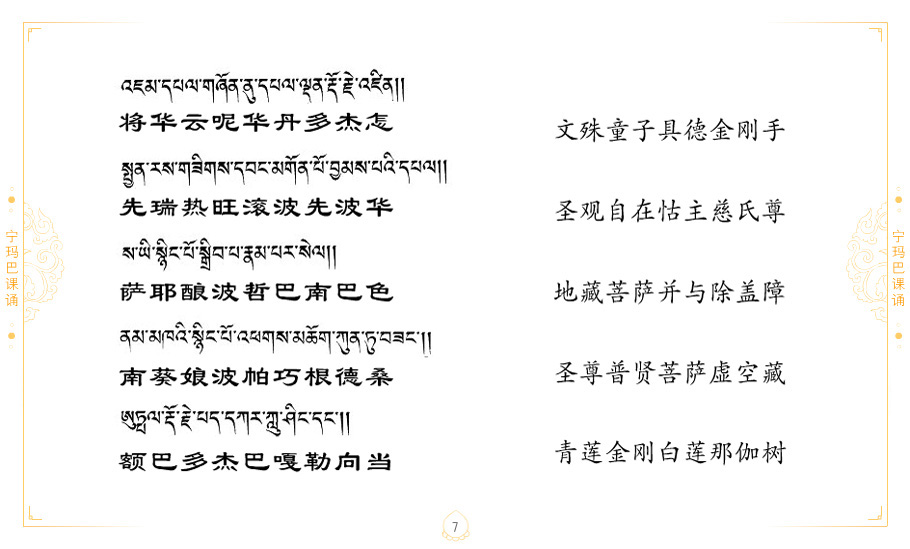 འཇམ་དཔལ་གཞོན་ནུ་དཔལ་ལྡན་རྡོ་རྗེ་འཛིན།།
将华云呢华丹多杰怎
文殊童子具德金刚手
སྤྱན་རས་གཟིགས་དབང་མགོན་པོ་བྱམས་པའི་དཔལ།།
先瑞热旺滚波先波华
圣观自在怙主慈氏尊
ས་ཡི་སྙིང་པོ་སྒྲིབ་པ་རྣམ་པར་སེལ།།
萨耶酿波哲巴南巴色
地藏菩萨并与除盖障
ནམ་མཁའི་སྙིང་པོ་འཕགས་མཆོག་ཀུན་ཏུ་བཟང་།།
南葵娘波帕巧根德桑
圣尊普贤菩萨虚空藏
ཨུཏྤལ་རྡོ་རྗེ་པད་དཀར་ཀླུ་ཤིང་དང་།།
额巴多杰巴嘎勒向当
青莲金刚白莲那伽树
宁玛巴课诵
宁玛巴课诵
7